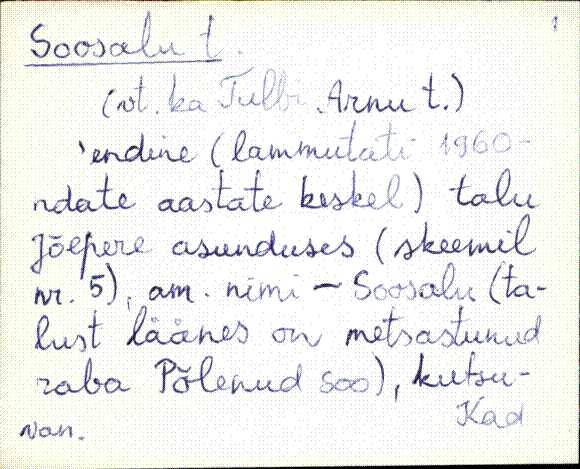 1
Soosalu t.
(vt. ka Tulbi Arnu t.)
'endine (lammutati 1960-
ndate aastate keskel) talu
Jõepere asunduses (skeemil
nr. 5), am. nimi - Soosalu (ta-
lust läänes on metsastunud
raba Põlenud soo), kutsu-
Kad
van.